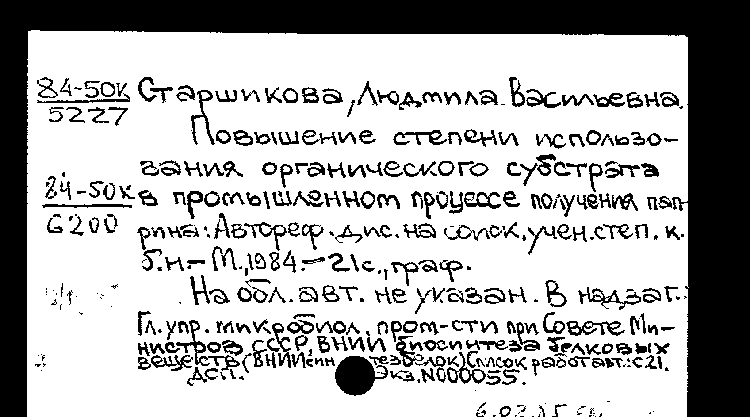 84-50к Старшикова, Людмила Васильевна.
5227
Повышение степени использо-
вания органического субстрата
84-50к в промышленном процессе получения пап-
6200 рина: Автореф. дис. на соиск. учен. степ. к.
б.н.– М., 1984.–21с., граф.
На обл. авт. не указан. В надзаг.:
Гл. упр. микробиол. пром-сти при Совете Ми-
нистров СССР, ВНИИ биосинтеза белковых
веществ (ВНИИсинтезбелок) Список работ авт.: с.21.
ДСП. Экз. N000055.
6.02.85